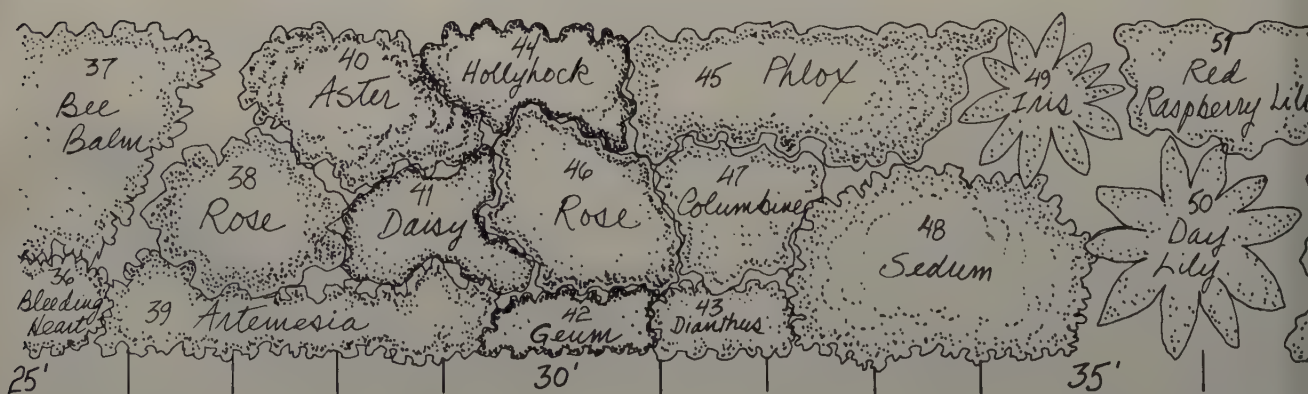 37
Bee
Balm
40
Aster
44
Hollyhock
45 Phlox
49
Iris
51
Red
Raspberry Lil
38
Rose
41
Daisy
46
Rose
47
Columbine
48
Sedum
50
Day
Lily
36
Bleeding
Heart
39 Artemesia
42
Geum
43
Dianthus
25'
30'
35'